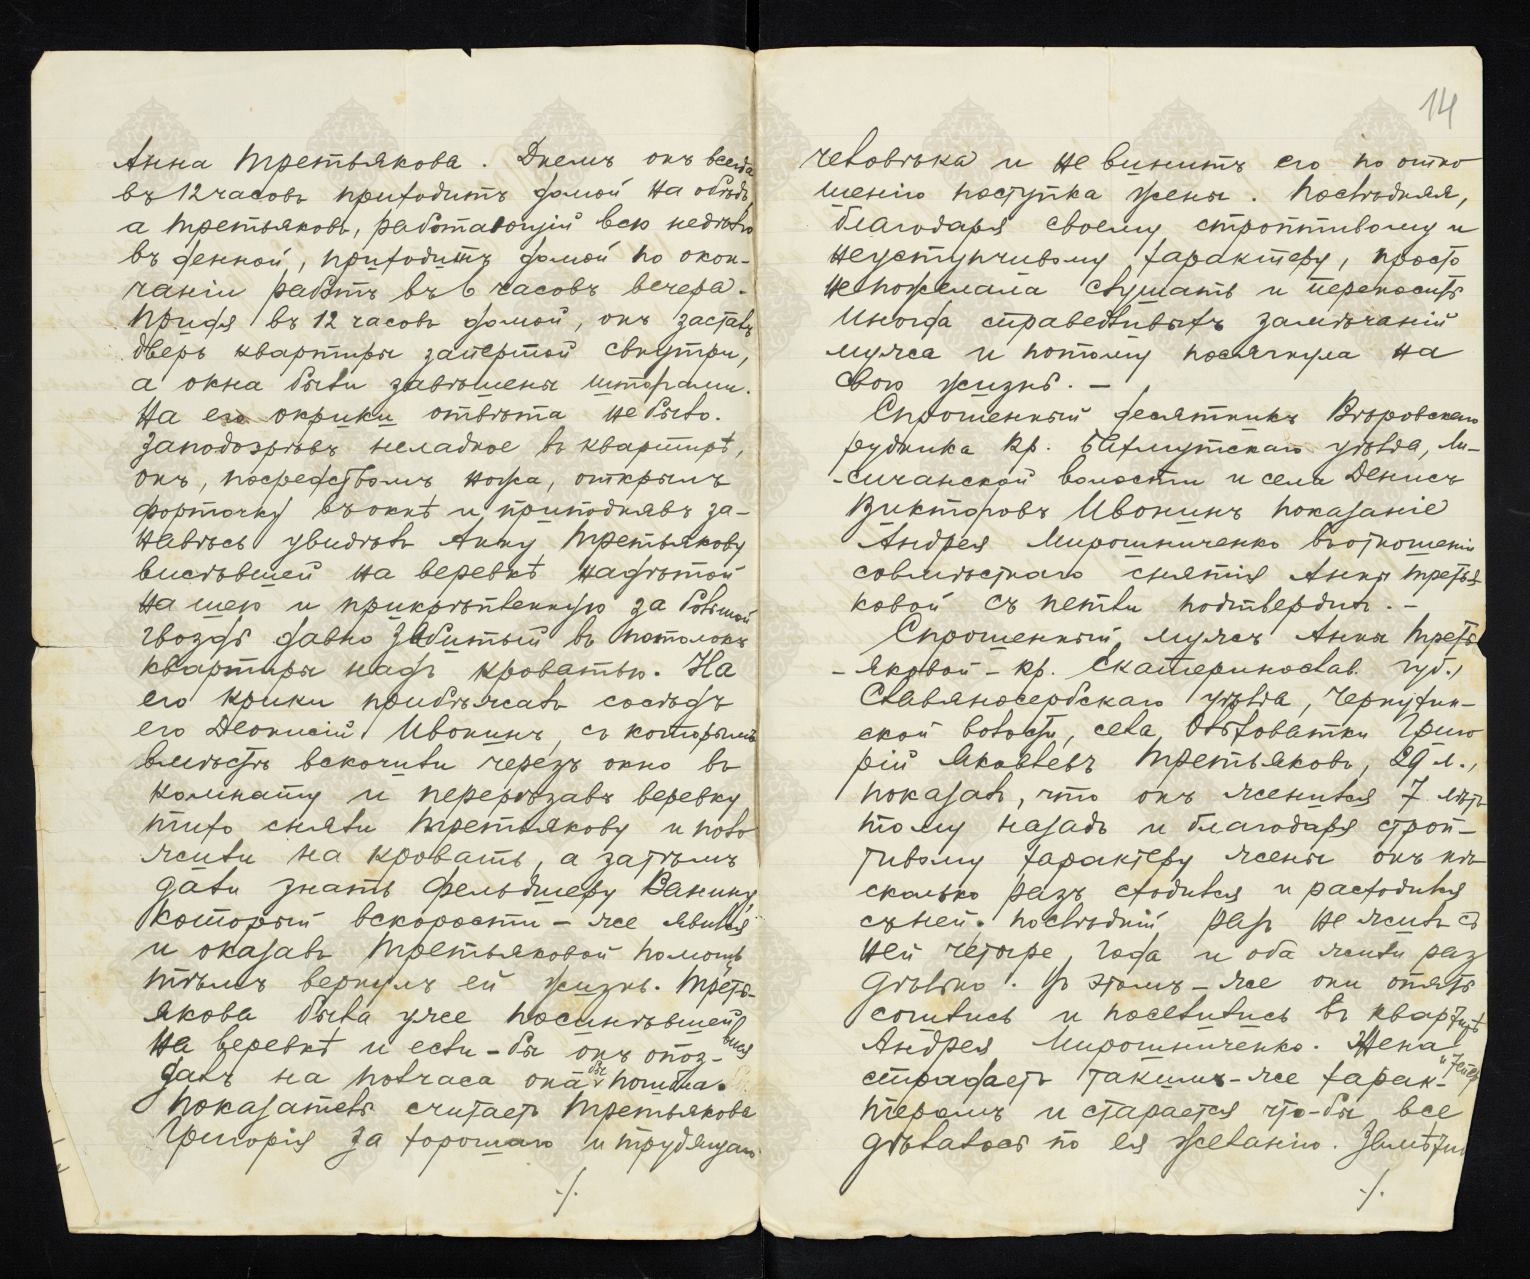 Анна Третьякова. Днемъ онъ всегда
въ 12 часовъ приходитъ домой на обѣдъ,
а Третьяковъ, работающій всю недѣлю
въ денной, приходитъ домой по окон-
чаніи работъ въ 6 часовъ вечера.
Придя въ 12 часовъ домой, онъ засталъ
дверь квартиры запертой снутри,
а окна были завѣшены шторами.
На его окрики отвѣта не было.
Заподозрѣвъ неладное въ квартирѣ,
онъ, посредствомъ ножа, открылъ
форточку въ окнѣ и приподнявъ за-
навѣсь увидѣлъ Анну Третьякову
висѣвшей на веревкѣ, надѣтой
на шею и прикрѣпленную за большой
гвоздь давно забитый въ потолокъ
квартиры надъ кроватью. На
его крики прибѣжалъ сосѣдъ
его Деонисій Ивонинъ, съ которымъ
вмѣстѣ вскочили черезъ окно въ
комнату и перерѣзавъ веревку
тихо сняли Третьякову и поло
жили на кровать, а затѣмъ
дали знать фельдшеру Ванину,
который вскорости-же явился
и оказалъ Третьяковой помощь
тѣмъ вернулъ ей жизнь. Третья-
якова была уже посинѣвшей
на веревкѣ и если-бы онъ опоз-
вися
далъ на полчаса она бы погибла.
Показатель считаетъ Третьякова
Григорія за хорошаго и трудящаго
./.
14
человѣка и не винитъ его по отно
шенію поступка жены. Послѣдняя,
благодаря своему строптивому и
неуступчивому характеру, просто
не пожелала слушать и переносить
иногда справедливыхъ замѣчаній
мужа и потому посягнула на
свою жизнь. —
Спрошенный десятникъ Вѣровскаго
рудника кр. Бахмутскаго уѣзда, Ли-
-сичанской волости и села Денисъ
Викторовъ Ивонинъ показаніе
Андрея Мирошниченко въ отношеніи
совмѣстнаго снятія Анны Третья-
ковой съ петли подтвердилъ. —
Спрошенный, мужъ Анны Треть
-яковой - кр. Екатеринослав. губ.,
Славяносербскаго уѣзда, Черкухин-
ской волости, села Облховатки Григо
рій Яковлевъ Третьяковъ, 29 л.,
показалъ, что онъ женился 7 лѣтъ
тому назадъ и благодаря строп-
тивому характеру жены онъ нѣ
сколько разъ сходился и расходился
съ ней. Послѣдній разъ не жилъ съ
ней четыре года и оба жили раз
дѣльно. Въ этомъ-же они опять
сошлись и поселились въ квартирѣ
Андрея Мирошниченко. Жена
страдаетъ такимъ-же харак-
теромъ и старается что-бы все
дѣлалось по ея желанію.
./.